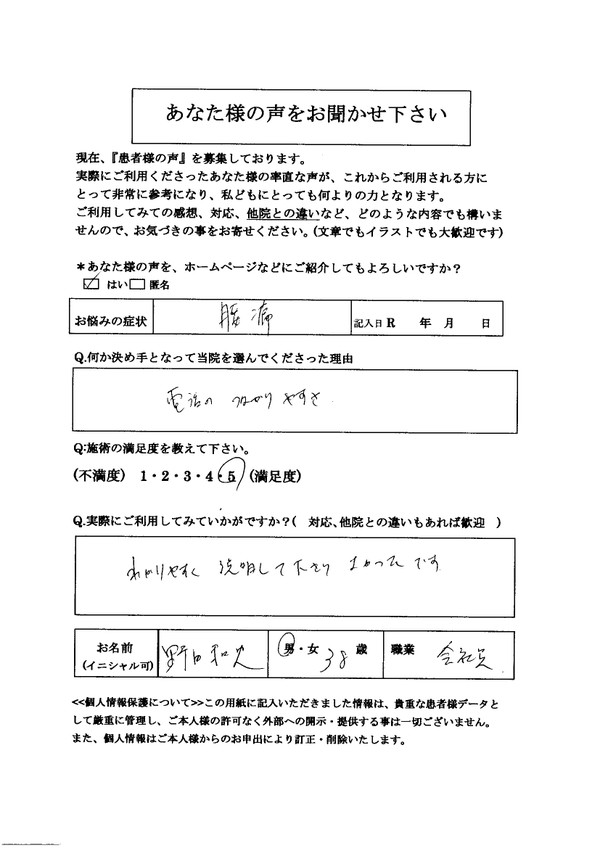 あなた様の声をお聞かせ下さい
現在、『患者様の声』を募集しております。
実際にご利用くださったあなた様の率直な声が、これからご利用される方に
とって非常に参考になり、私どもにとっても何よりの力となります。
ご利用してみての感想、対応、他院との違いなど、どのような内容でも構いま
せんので、お気づきの事をお寄せください。(文章でもイラストでも大歓迎です)
＊あなた様の声を、ホームページなどにご紹介してもよろしいですか？
☑ はい □ 匿名
お悩みの症状 腰痛 記入日 R 年 月 日
Q.何か決め手となって当院を選んでくださった理由
電話の つながりやすさ
Q:施術の満足度を教えて下さい。
(不満度) 1・2・3・4・5 (満足度)
Q.実際にご利用してみていかがですか？( 対応、他院との違いもあれば歓迎 )
わかりやすく 説明して下さり よかったです
お名前 野田 男・女 38 歳 職業 会社員
(イニシャル可)
<<個人情報保護について>>この用紙に記入いただきました情報は、貴重な患者様データと
して厳重に管理し、ご本人様の許可なく外部への開示・提供する事は一切ございません。
また、個人情報はご本人様からのお申出により訂正・削除いたします。